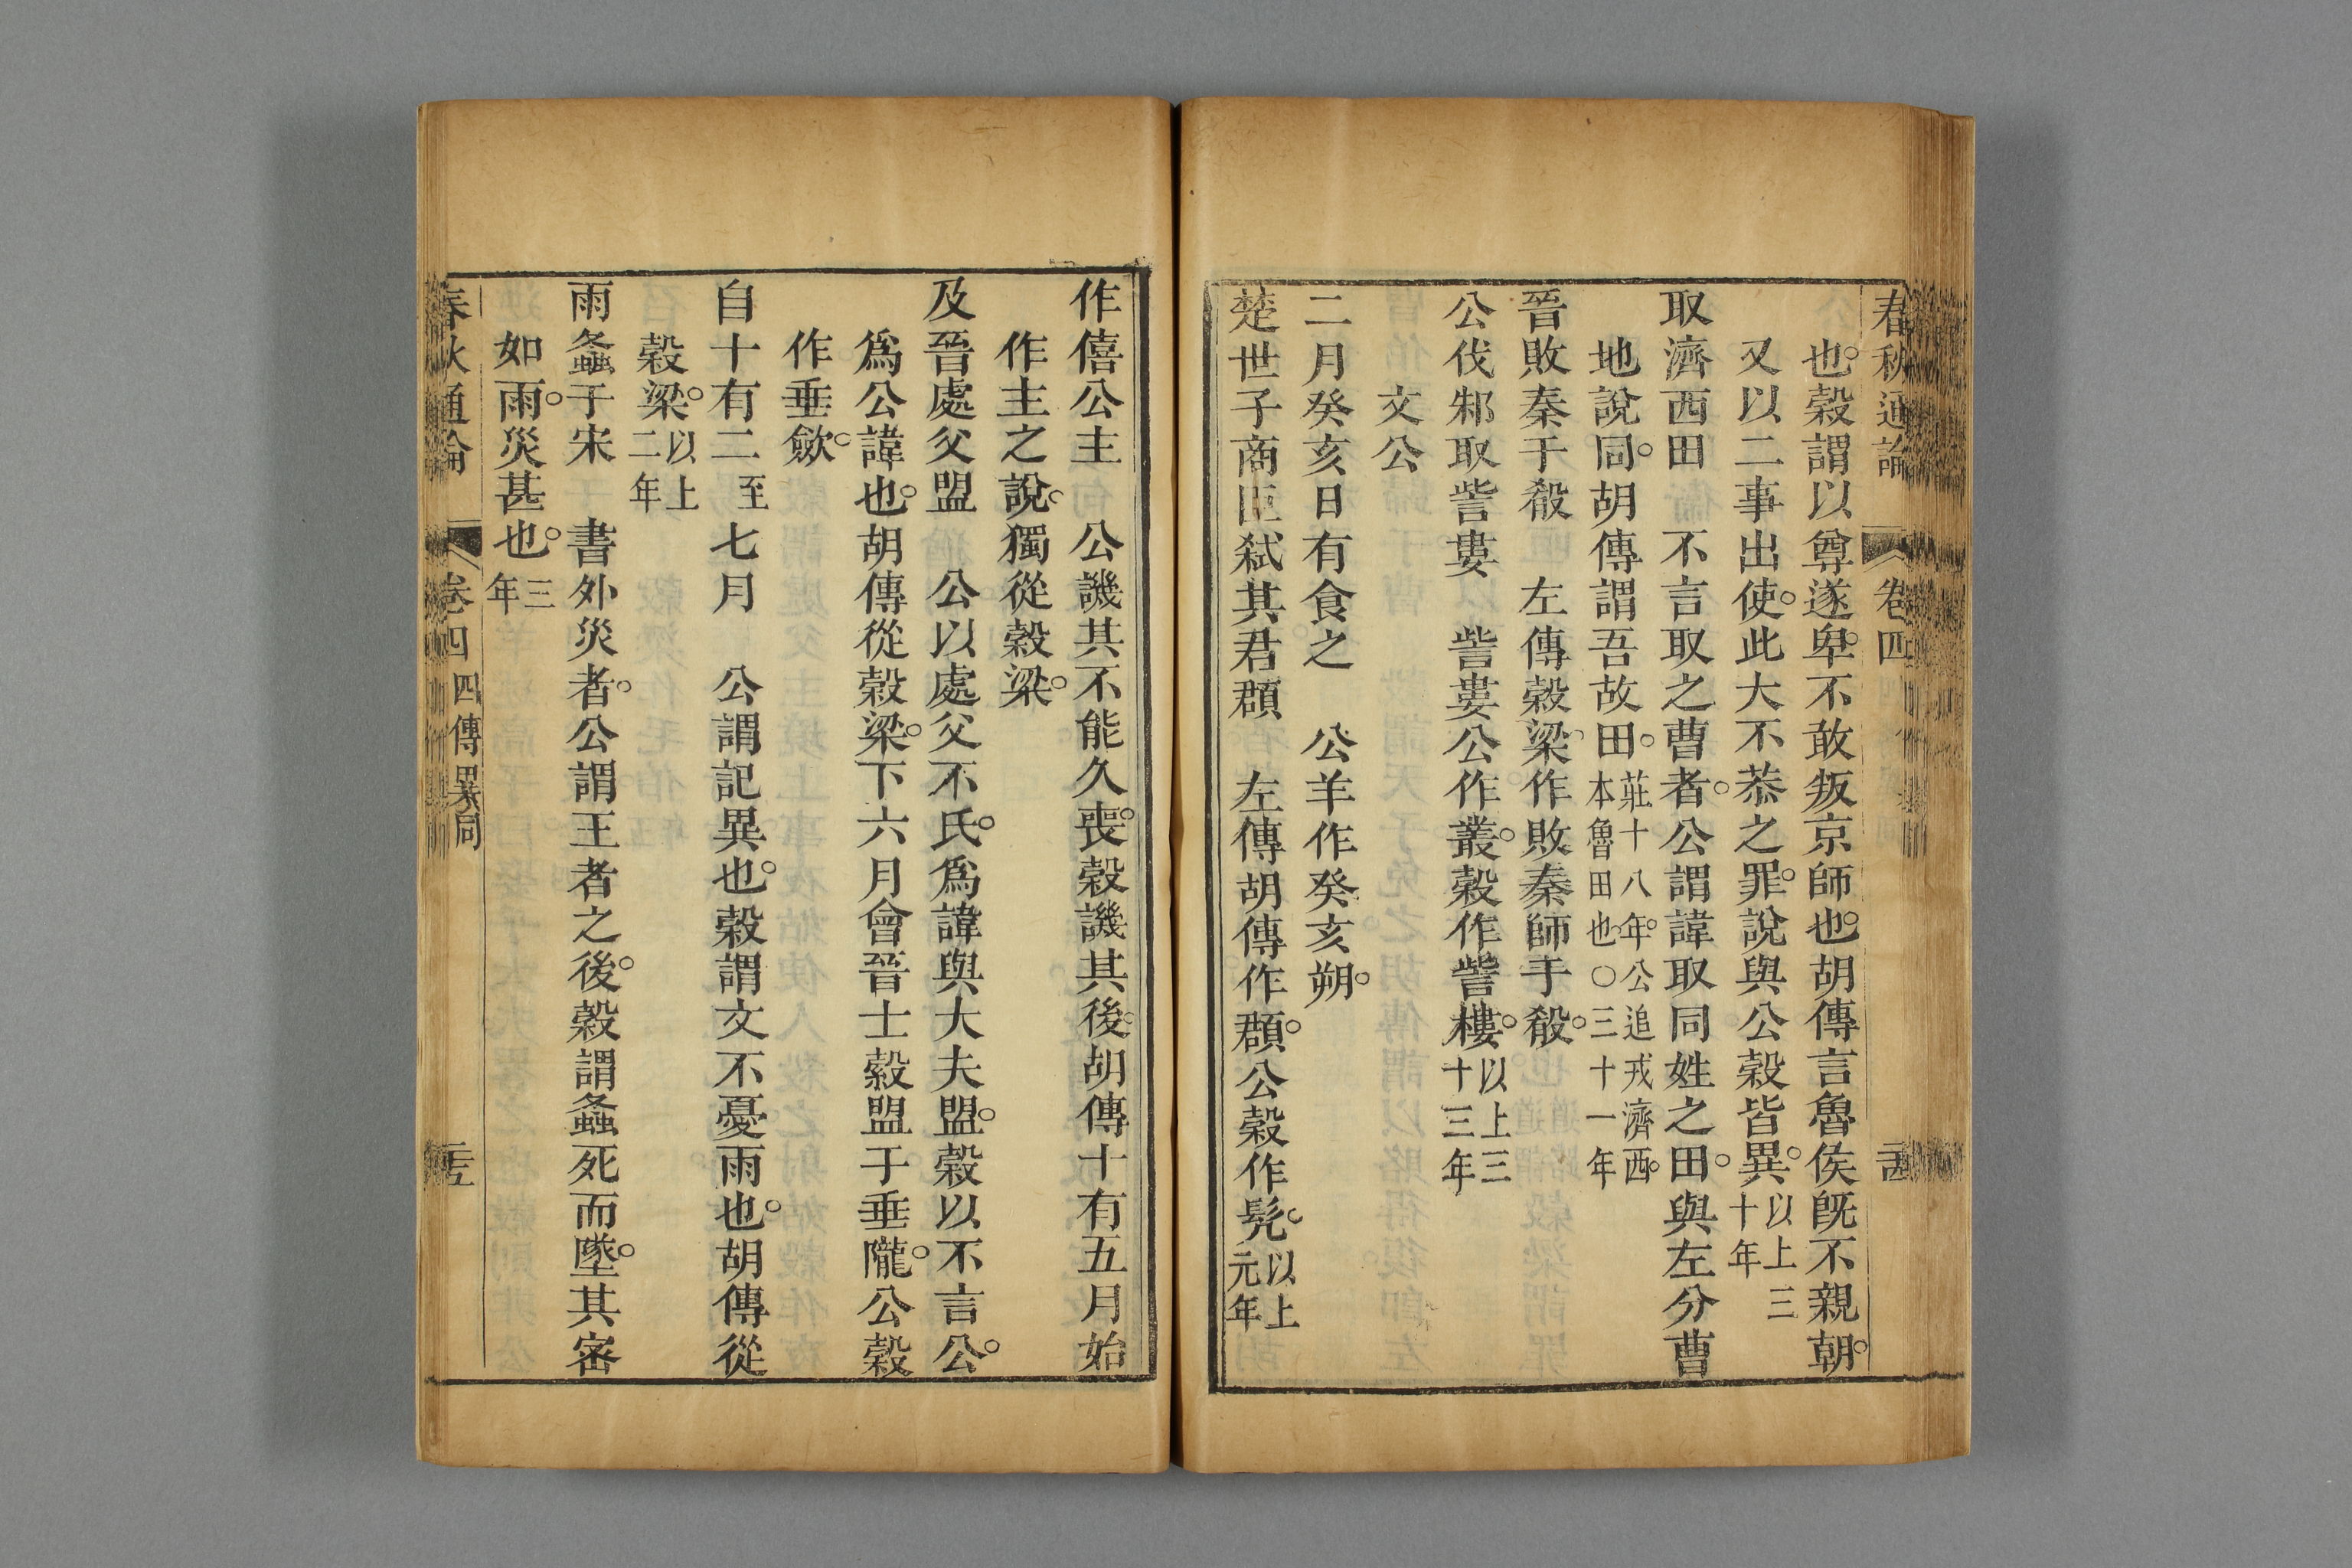 春秋通論 卷四
也穀謂以尊遂卑不敢叛京師也胡傳言魯侯旣不親朝
又以二事出使此大不恭之罪說與公穀皆異以上三十年
取濟西田 不言取之曹者公謂諱取同姓之田與左分曹
地說同胡傳謂吾故田莊十八年公追戎濟西本魯田也〇三十一年
晉敗秦于殽 左傳穀梁作敗秦師于殽
公伐邾取訾婁 訾婁公作叢穀作訾樓以上三十三年
文公
二月癸亥日有食之 公羊作癸亥朔
楚世子商臣弒其君頵 左傳胡傳作頵公穀作髡以上元年
作僖公主 公譏其不能久喪穀譏其後胡傳十有五月始
作主之說獨從穀梁
及晉處父盟 公以處父不氏爲諱與大夫盟穀以不言公
爲公諱也胡傳從穀梁下六月會晉士縠盟于垂隴公穀
作垂歛
自十有二至七月 公謂記異也穀謂文不憂雨也胡傳從
穀梁以上二年
雨螽于宋 書外災者公謂王者之後穀謂螽死而墜其密
如雨災甚也三年
春秋通論 卷四 四傳異同